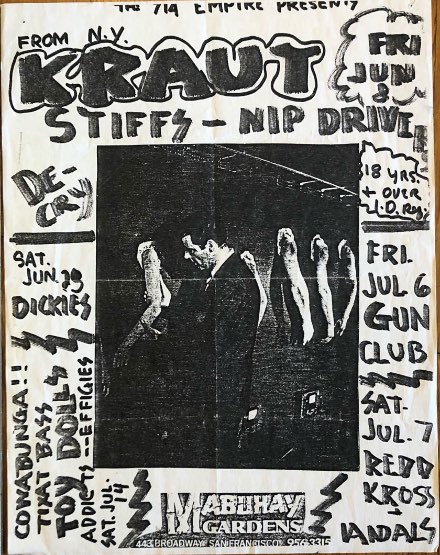 THE 714 EMPIRE PRESENTS
FROM N.Y.
KRAUT
FRI
JUN
8
STIFFS - NIP DRIVE
DE-
CRY
18 YRS.
+ OVER
I.D. Req.
SAT.
JUN. 23
DICKIES
COWABUNGA!!
TWAT BASS
TOY DOLLS
ADDICTS -- EFFIGIES
SAT. JUL.
14
FRI.
JUL 6
GUN
CLUB
SAT.
JUL. 7
REDD
KROSS
VANDALS
MABUHAY
GARDENS
443 BROADWAY, SAN FRANCISCO 956-3315